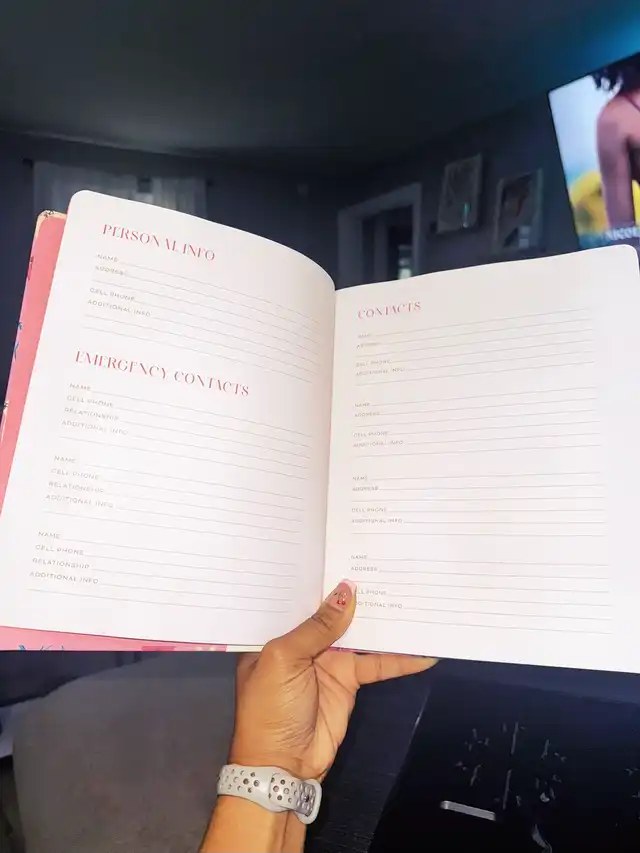 PERSONAL INFO
NAME
ADDRESS
CELL PHONE
ADDITIONAL INFO
EMERGENCY CONTACTS
NAME
CELL PHONE
RELATIONSHIP
ADDITIONAL INFO
NAME
CELL PHONE
RELATIONSHIP
ADDITIONAL INFO
NAME
CELL PHONE
RELATIONSHIP
ADDITIONAL INFO
CONTACTS
NAME
ADDRESS
CELL PHONE
ADDITIONAL INFO
NAME
ADDRESS
CELL PHONE
ADDITIONAL INFO
NAME
ADDRESS
CELL PHONE
ADDITIONAL INFO
NAME
ADDRESS
CELL PHONE
DITIONAL INFO